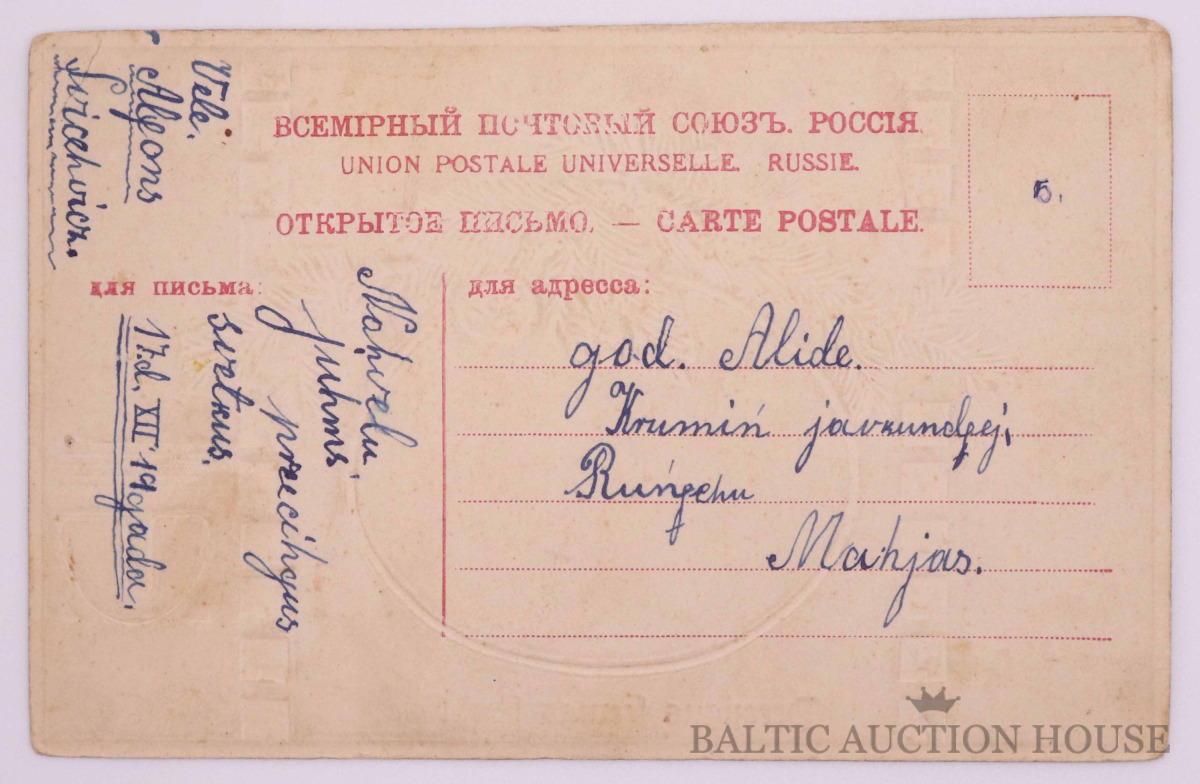 ВСЕМІРНЫЙ ПОЧТОВЫЙ СОЮЗЪ. РОССІЯ.
UNION POSTALE UNIVERSELLE. RUSSIE.
ОТКРЫТОЕ ПИСЬМО. — CARTE POSTALE.
5.
для письма:
для адресса:
god. Alide.
Krumiń
Mahjas.
Nahvelu
juhms
preecihgus
svetkus.
17.d. XII 19 gada.
Vele.
BALTIC AUCTION HOUSE